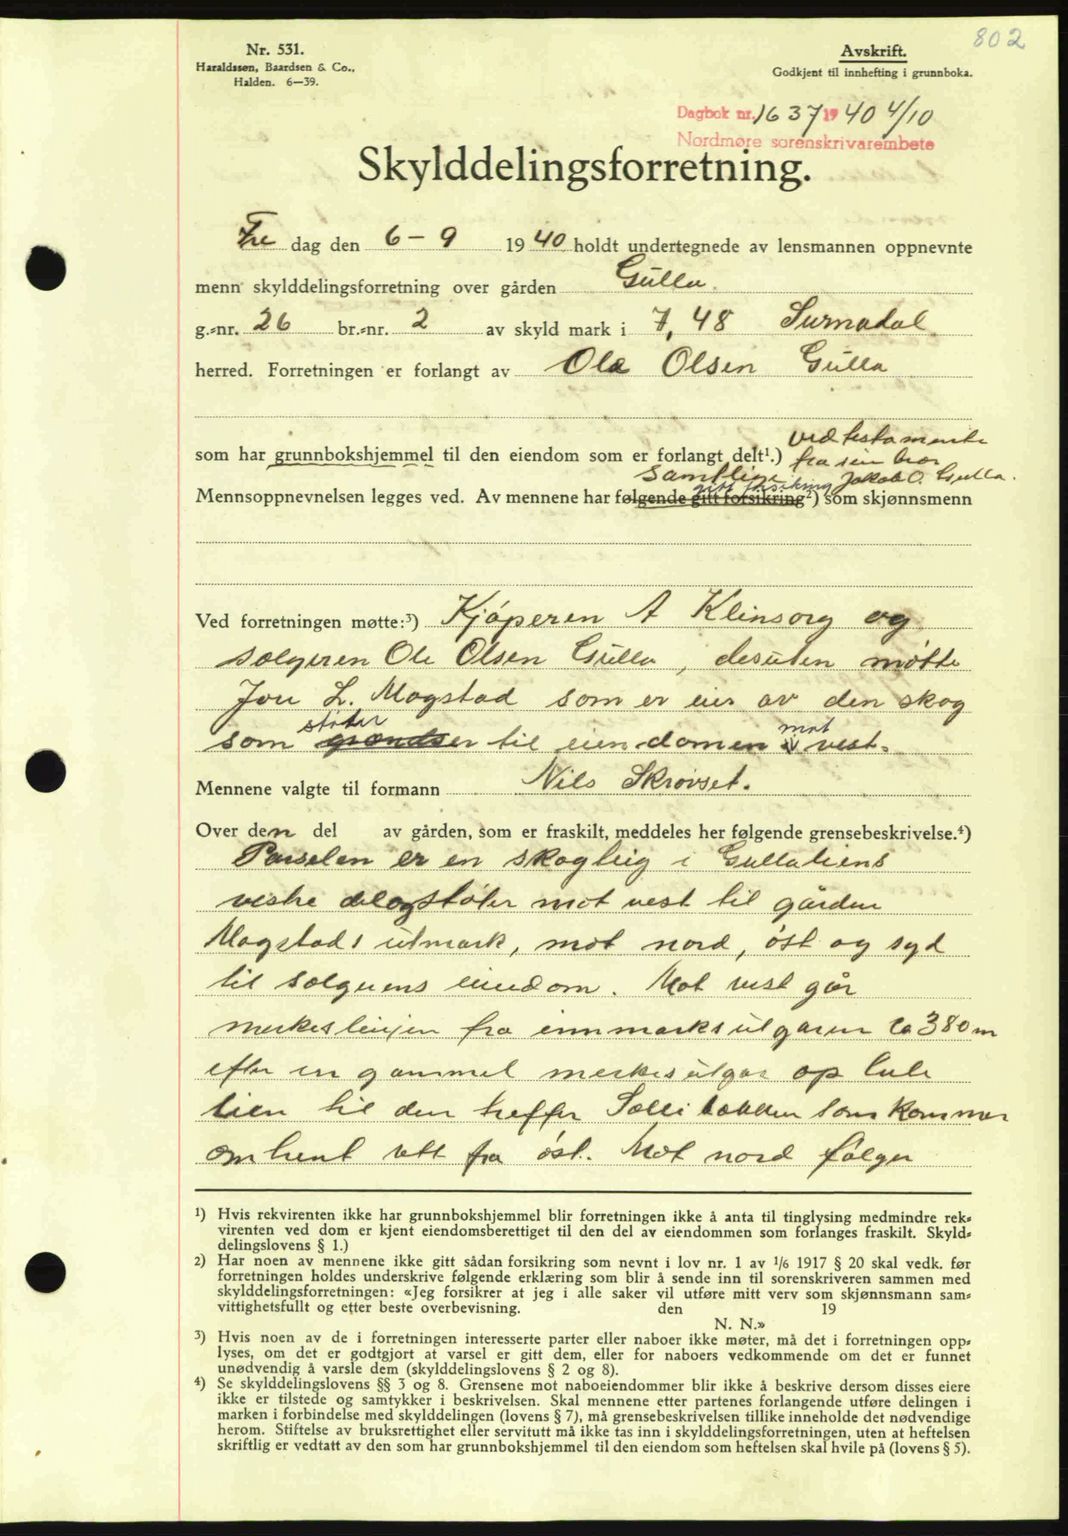 802
Nr. 531.
Haraldssøn, Baardsen & Co.,
Halden. 6—39.
Avskrift.
Godkjent til innhefting i grunnboka.
Dagbok nr. 1637 1940 4/10
Nordmøre sorenskrivarembete
Skylddelingsforretning.
Fre dag den 6 – 9 1940 holdt undertegnede av lensmannen oppnevnte
menn skylddelingsforretning over gården Gulla.
g.-nr. 26 br.-nr. 2 av skyld mark i 7,48 Surnadal
herred. Forretningen er forlangt av Ola Olsen Gulla
som har grunnbokshjemmel til den eiendom som er forlangt delt¹.) ved testamente
fra sin bror
Jakob O. Gulla.
samtlige gitt forsikring
Mennsoppnevnelsen legges ved. Av mennene har følgende gitt forsikring²) som skjønnsmenn
Ved forretningen møtte:³) Kjøperen A Klinsorg og
sælgeren Ole Olsen Gulla, desuten møtte
Jon L. Mogstad som er eier av den skog
som støter grændser til eiendomen i mot vest.
Mennene valgte til formann Nils Skrøvset.
Over den del av gården, som er fraskilt, meddeles her følgende grensebeskrivelse.⁴)
Parselen er en skogteig i Gullaliens
vestre del og støter mot vest til gården
Mogstads utmark, mot nord, øst og syd
til sælgerens eiendom. Mot vest går
merkeslinjen fra innmarksutgaren ca 380 m
efter en gammel merkesutgar op hele
lien til den treffer som kommer
omtrent rett fra øst. Mot nord følger
¹) Hvis rekvirenten ikke har grunnbokshjemmel blir forretningen ikke å anta til tinglysing medmindre rek-
virenten ved dom er kjent eiendomsberettiget til den del av eiendommen som forlanges fraskilt. Skyld-
delingslovens § 1.)
²) Har noen av mennene ikke gitt sådan forsikring som nevnt i lov nr. 1 av 1/6 1917 § 20 skal vedk. før
forretningen holdes underskrive følgende erklæring som blir å sende inn til sorenskriveren sammen med
skylddelingsforretningen: «Jeg forsikrer at jeg i alle saker vil utføre mitt verv som skjønnsmann sam-
vittighetsfullt og etter beste overbevisning. den 19
N. N.»
³) Hvis noen av de i forretningen interesserte parter eller naboer ikke møter, må det i forretningen opp-
lyses, om det er godtgjort at varsel er gitt dem, eller for naboers vedkommende om det er funnet
unødvendig å varsle dem (skylddelingslovens § 2 og 8).
⁴) Se skylddelingslovens §§ 3 og 8. Grensene mot naboeiendommer blir ikke å beskrive dersom disses eiere
ikke er tilstede og samtykker i beskrivelsen. Skal mennene etter partenes forlangende utføre delingen i
marken i forbindelse med skylddelingen (lovens § 7), må grensebeskrivelsen tillike inneholde det nødvendige
herom. Stiftelse av bruksrettighet eller servitutt må ikke tas inn i skylddelingsforretningen, uten at heftelsen
skriftlig er vedtatt av den som har grunnbokshjemmel til den eiendom som heftelsen skal hvile på (lovens § 5).